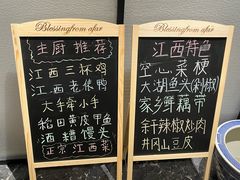 Blessingfrom afar
主厨推荐
江西三杯鸡
江西老俵鸭
大手牵小手
稻田黄皮甲鱼
酒糟馒头
正宗江西菜
Blessingfrom afar
江西特色
空心菜梗
大湖鱼头(辣)
家乡藕带
余干辣椒炒肉
井冈山豆皮